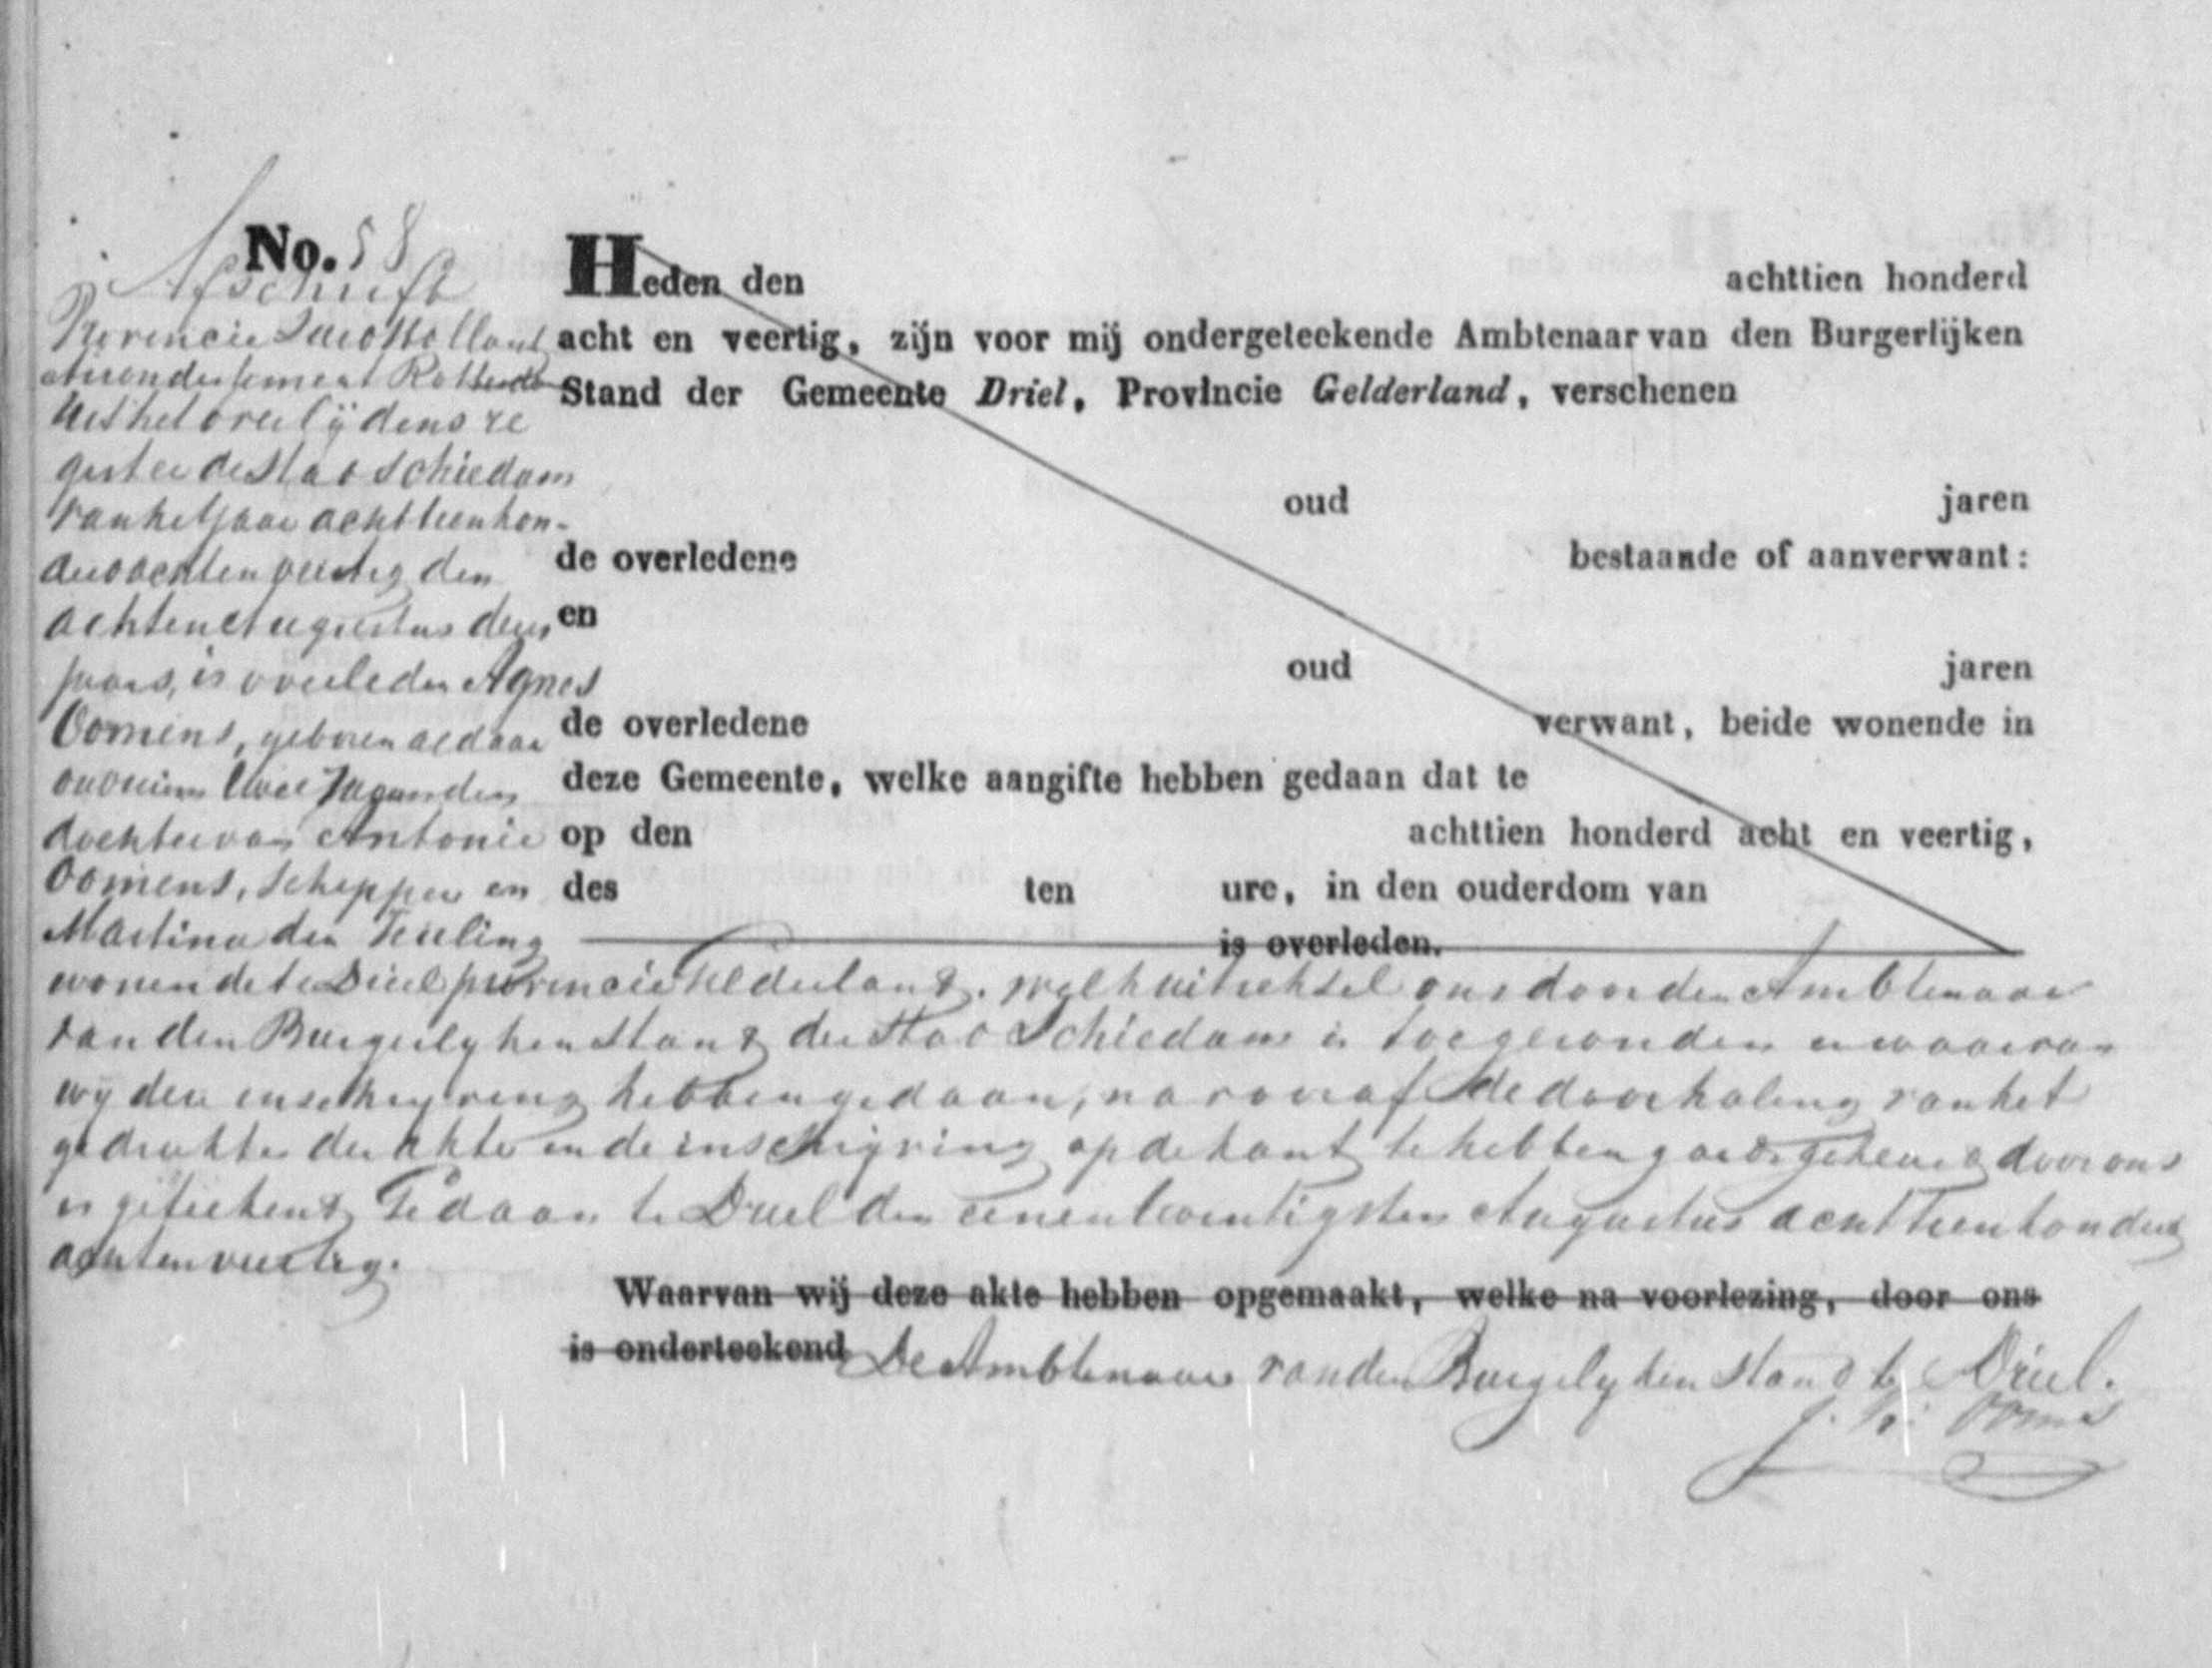 No. 58
Afschrift
Heden den achttien honderd
Provincie Zuid Holland
acht en veertig, zijn voor mij ondergeteekende Ambtenaar van den Burgerlijken
Arrondissement Rotterdam
Stand der Gemeente Driel, Provincie Gelderland, verschenen
Uit het overlijdens re
gister der Stad Schiedam
oud jaren
van het jaar achttienhon-
de overledene bestaande of aanverwant:
derd achtenveertig den
en
achten Augustus dezes
oud jaren
jaars, is overleden Agnes
de overledene verwant, beide wonende in
Oomens, geboren aldaar
deze Gemeente, welke aangifte hebben gedaan dat te
oud twee Maanden
op den achttien honderd acht en veertig,
dochter van Antonie
des ten ure, in den ouderdom van
Oomens, Schipper en
is overleden.
Martina den Teuling
wonende te Driel provincie Gelderland. welk uittreksel ons door den Ambtenaar
van den Burgerlyken Stand der Stad Schiedam is toegezonden en waarvan
wy deze inschryving hebben gedaan, na vooraf de doorhaling van het
gedrukte der akte en de inschryving op de kant te hebben goedgekeurd door ons
is geteekend. Gedaan te Driel den eenentwintigsten Augustus achttienhonderd
achtenveertig.
Waarvan wij deze akte hebben opgemaakt, welke na voorlezing, door ons
is onderteekend De Ambtenaar van den Burgelyken Stand te Driel.